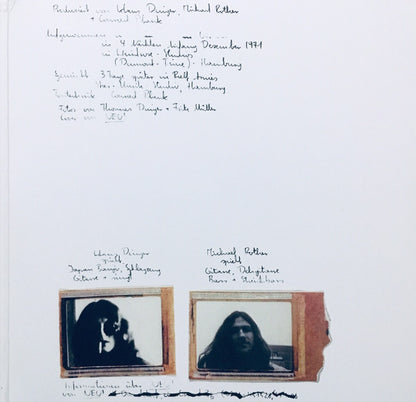 Produziert von Klaus Dinger, Michael Rother
+ Conrad Plank
Aufgenommen
in 4 Nächten Anfang Dezember 1971
im Windrose - Studio
(Dumont - Time) - Hamburg
Gemischt 3 Tage später in Ralf Arnies
Star-Musik Studio, Hamburg
Tontechnik: Conrad Plank
Fotos von Thomas Dinger + Fritz Müller
von 'NEU!'
Klaus Dinger
spielt
Japan Banjo, Schlagzeug
Gitarre + singt
Michael Rother
spielt
Gitarre, Deligitarre
Bass + Streichbass
Informationen über 'NEU!'
von 'NEU!'